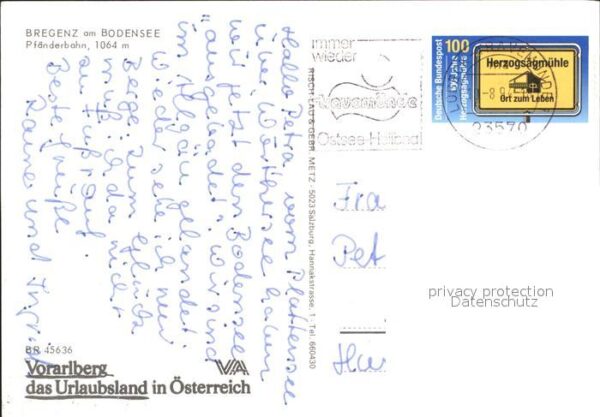 BREGENZ am BODENSEE
Pfänderbahn, 1064 m
Hallo Petra, vom Plattensee
über Wörthersee haben
wir jetzt den Bodensee
"auf Wir sind
im Allgäu gelandet
wieder sehe ich nur
Berge, zum Glück
muß da nicht
zu Fuß rauf.
Beste Grüße
Rainer und Ingrid
BR 45636
Vorarlberg
das Urlaubsland in Österreich
VA
RISCH-LAU & GEBR. METZ · 5023 Salzburg, Hannakstrasse, 1 · Tel. 660430
immer
wieder
Travemünde
Ostsee-Heilbad
Deutsche Bundespost
100
100 Jahre
Herzogsägmühle
Herzogsägmühle
Ort zum Leben
23570
Fra
Pet
privacy protection
Datenschutz